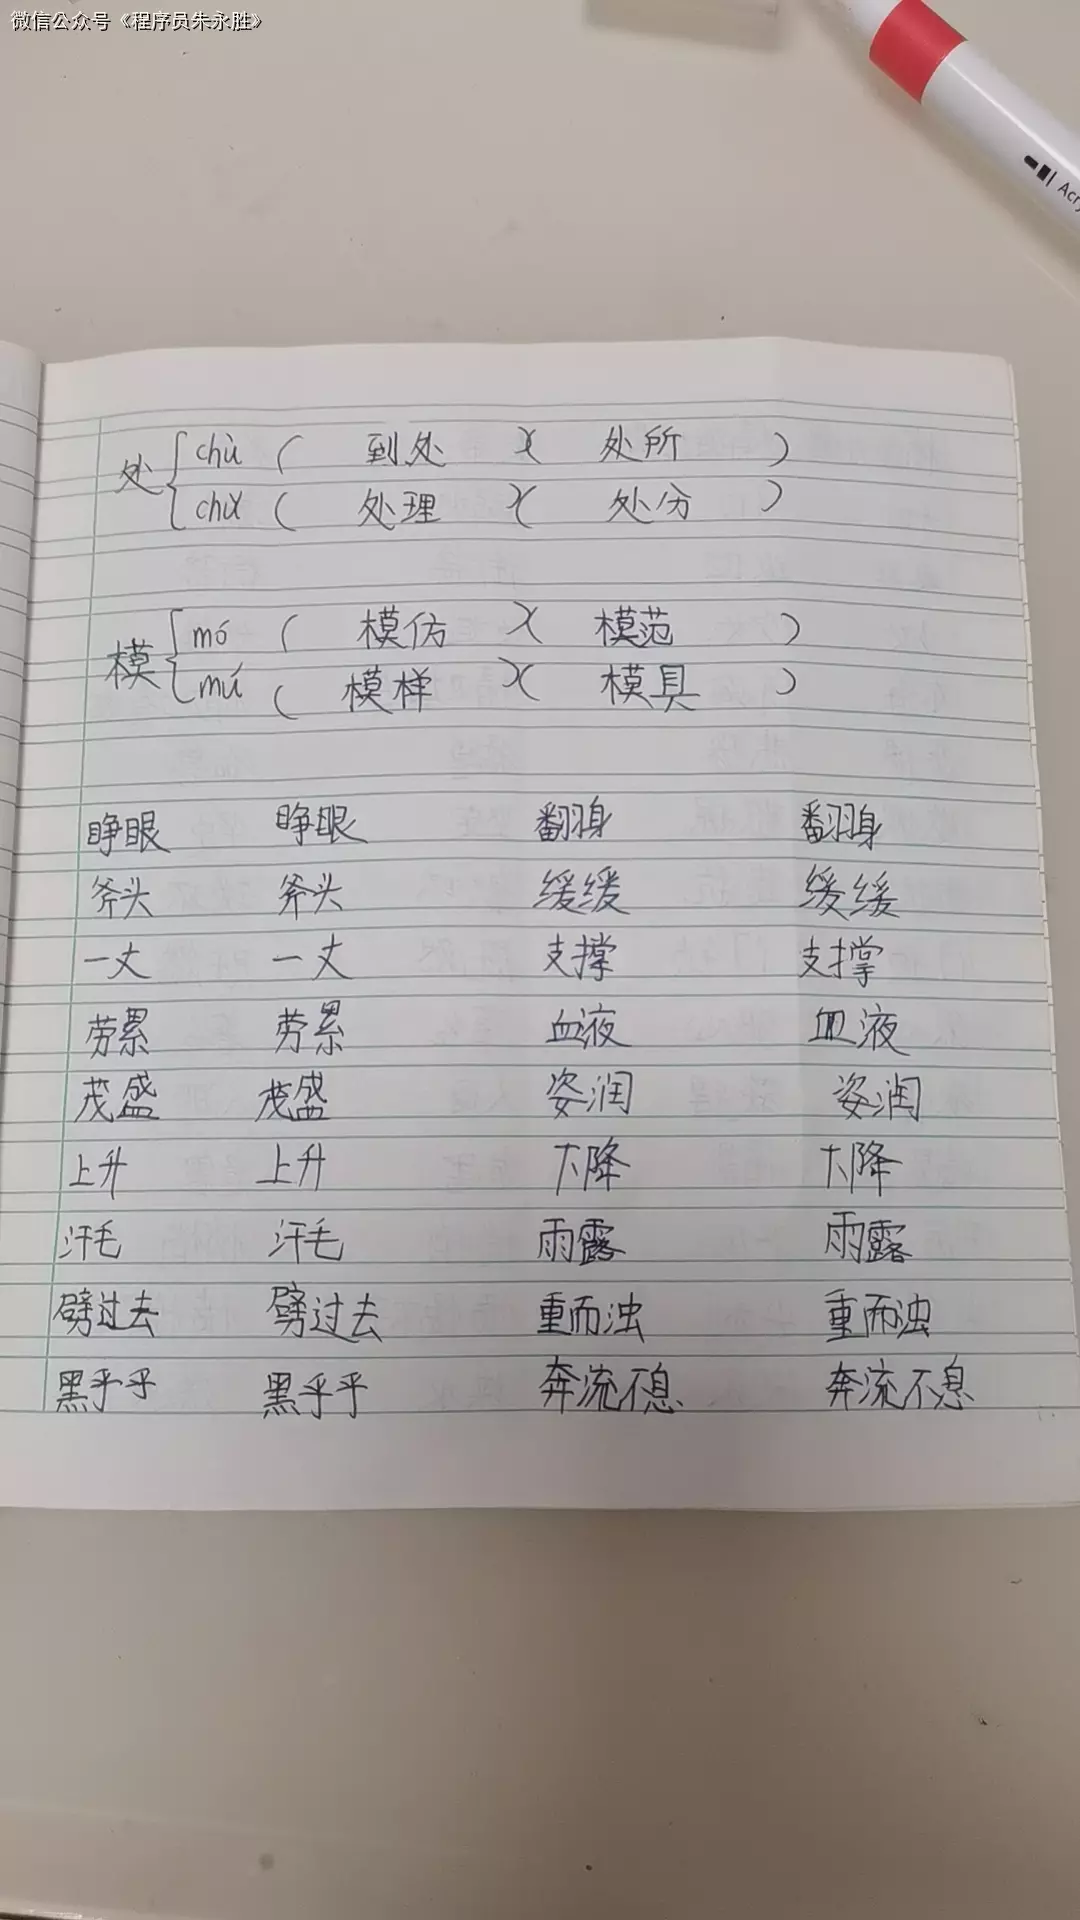 微信公众号《程序员朱永胜》
Acry
处 chù ( 到处 )( 处所 )
chǔ ( 处理 )( 处分 )
模 mó ( 模仿 )( 模范 )
mú ( 模样 )( 模具 )
睁眼 睁眼 翻身 翻身
斧头 斧头 缓缓 缓缓
一丈 一丈 支撑 支撑
劳累 劳累 血液 血液
茂盛 茂盛 姿润 姿润
上升 上升 下降 下降
汗毛 汗毛 雨露 雨露
劈过去 劈过去 重而浊 重而浊
黑乎乎 黑乎乎 奔流不息 奔流不息